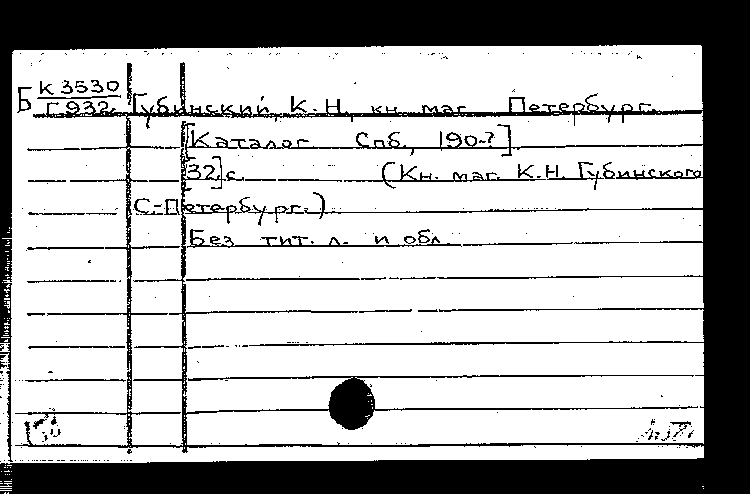 Б К 3530
Г 932 Губинский, К.Н., кн. маг. Петербург.
[Каталог Спб., 190-?]
[32] с. (Кн. маг. К.Н. Губинского
С.-Петербург.)
Без тит. л. и обл.